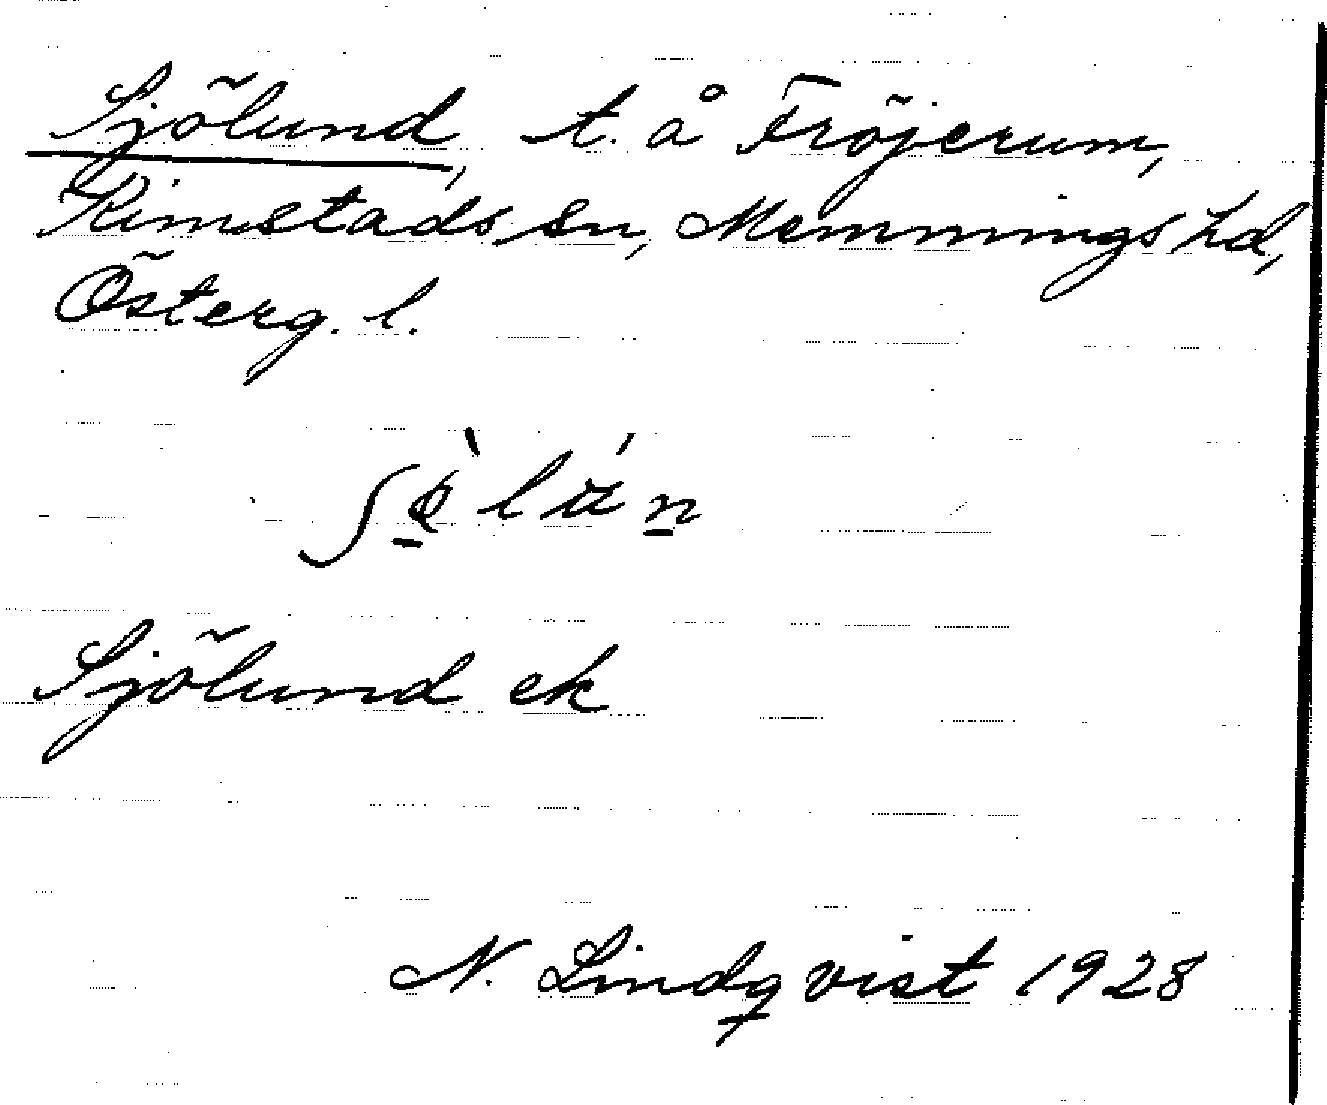 Sjölund, t. å Fröjerum,
Kimstads sn, Memmings hd,
Österg. l.
Sjölund ek
N. Lindqvist 1928